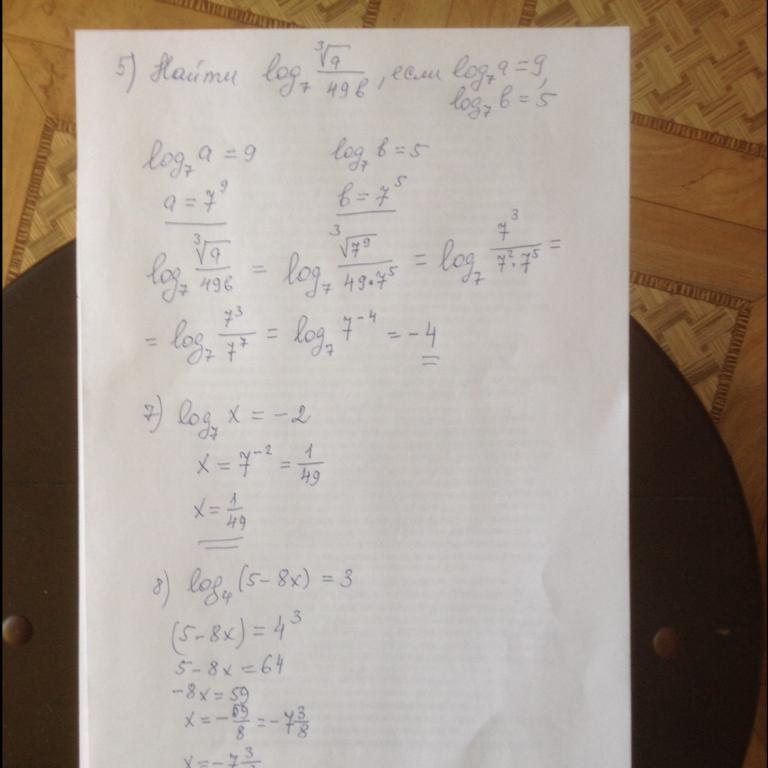 5) Найти log₇ ∛a/49b, если log₇a = 9,
log₇ b = 5
log₇ a = 9 log₇ b = 5
a = 7⁹ b = 7⁵
log₇ ∛a/49b = log₇ ∛7⁹/49·7⁵ = log₇ 7³/7²·7⁵ =
= log₇ 7³/7⁷ = log₇ 7⁻⁴ = -4
7) log₇ x = -2
x = 7⁻² = 1/49
x = 1/49
8) log₄ (5-8x) = 3
(5-8x) = 4³
5-8x = 64
-8x = 59
x = -59/8 = -7 3/8